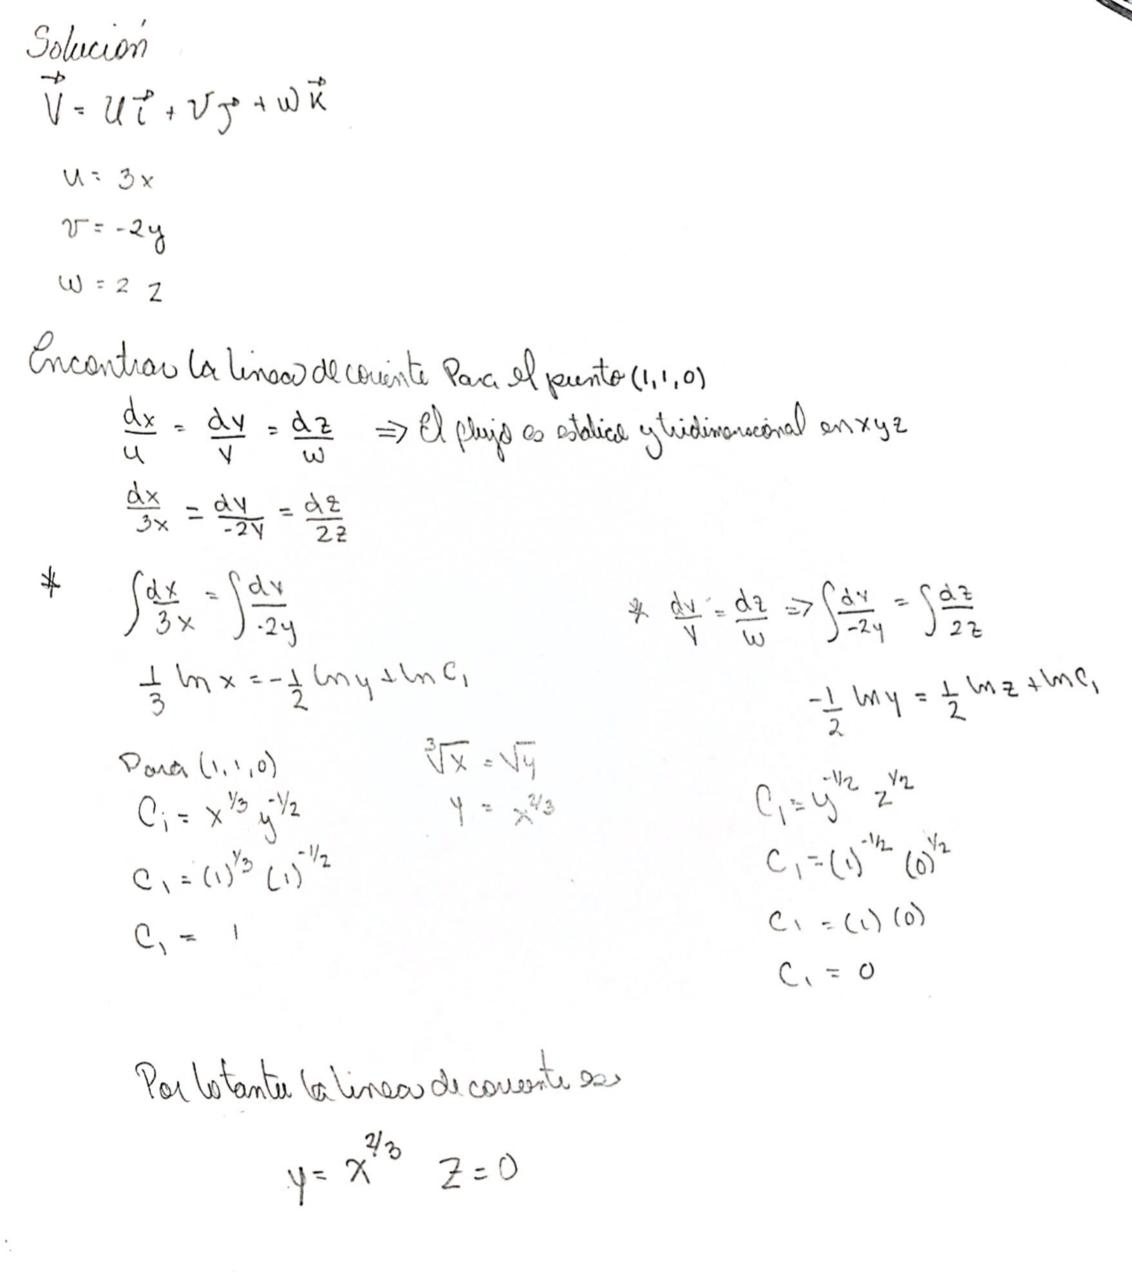 Solución
V⃗ = u i⃗ + v j⃗ + w k⃗
u = 3x
v = -2y
w = 2 z
Encontrar la linea de coriente Para el punto (1,1,0)
dx/u = dy/v = dz/w ⇒ El flujo es estatico y tridimensional en xyz
dx/3x = dy/-2y = dz/2z
* ∫dx/3x = ∫dy/-2y
1/3 ln x = -1/2 ln y + ln C₁
Para (1,1,0)
C₁ = x^1/3 y^-1/2
C₁ = (1)^1/3 (1)^-1/2
C₁ = 1
∛x = √y
y = x^2/3
* dy/v = dz/w ⇒ ∫dy/-2y = ∫dz/2z
-1/2 ln y = 1/2 ln z + ln C₁
C₁ = y^-1/2 z^1/2
C₁ = (1)^-1/2 (0)^1/2
C₁ = (1) (0)
C₁ = 0
Por lo tanto la linea de coriente es
y = x^2/3 z = 0